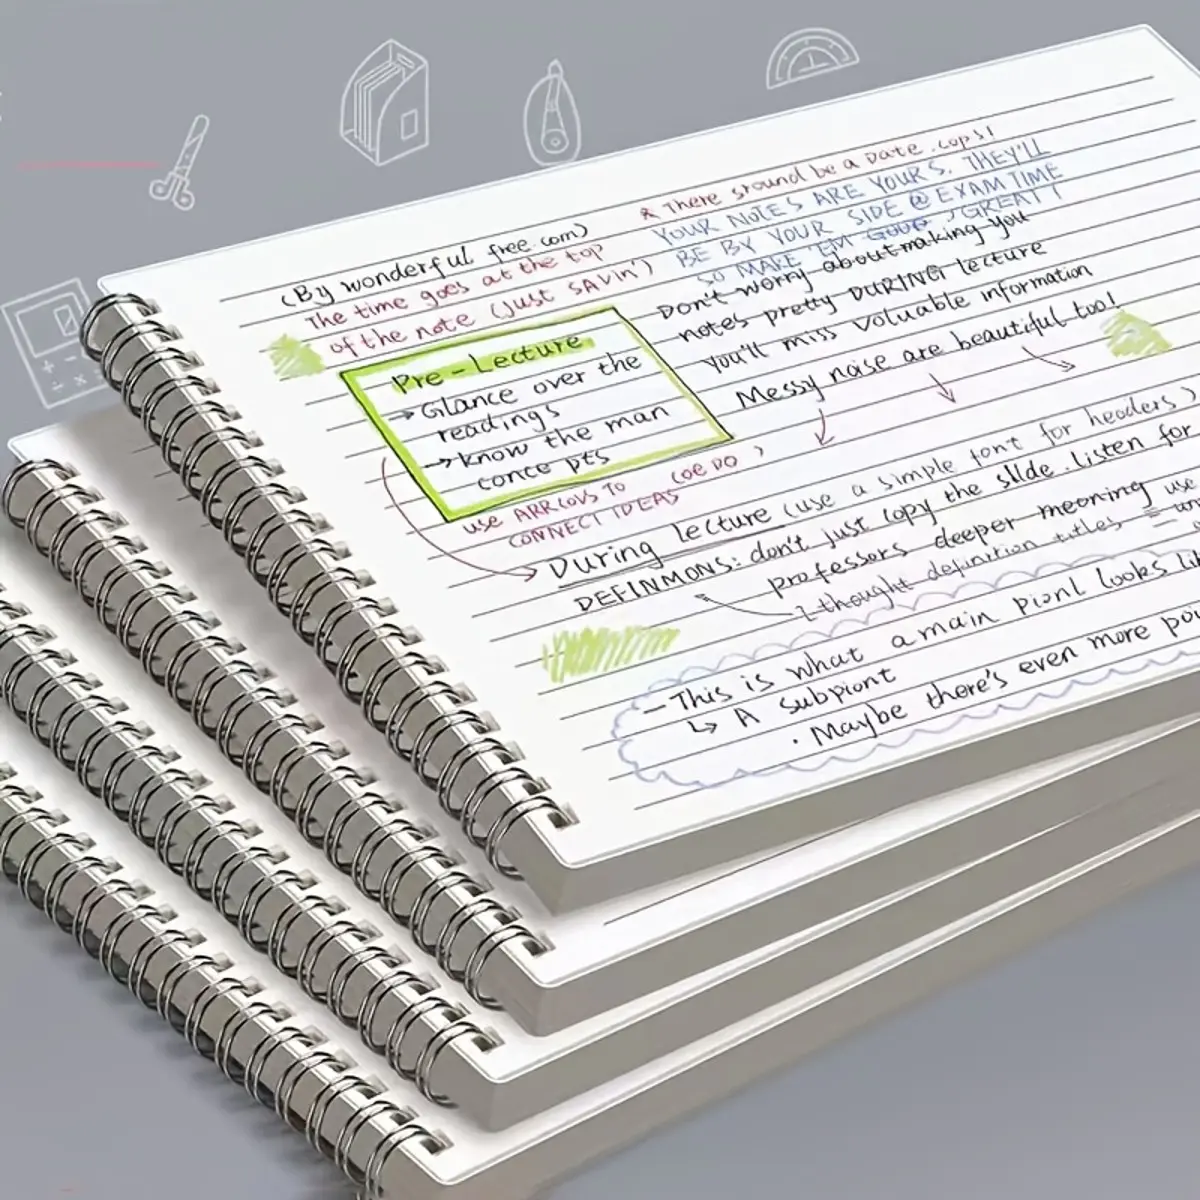 & There sround be a Date .cops!
(By wonderful free.com)
The time goes at the top
of the note (just SAVin')
YOUR NOTES ARE YOURS. THEY'LL
BE BY YOUR SIDE @ EXAM TIME
SO MAKE 'EM GOOD, GREAT!
Don't worry about making you
notes pretty DURING lecture
You'll miss valuable information
Messy noise are beautiful too!
Pre-Lecture
→Glance over the
readings
→know the man
conce pts
use ARRcovs To (oe Do)
CONNECT IDEAS
During lecture (use a simple font for headers)
DEFINMONS: don't just copy the slide .listen for
professors deeper meoning use
1-thought definition titles =
- This is what a main pionl looks li
↳ A subpiont
· Maybe there's even more poi